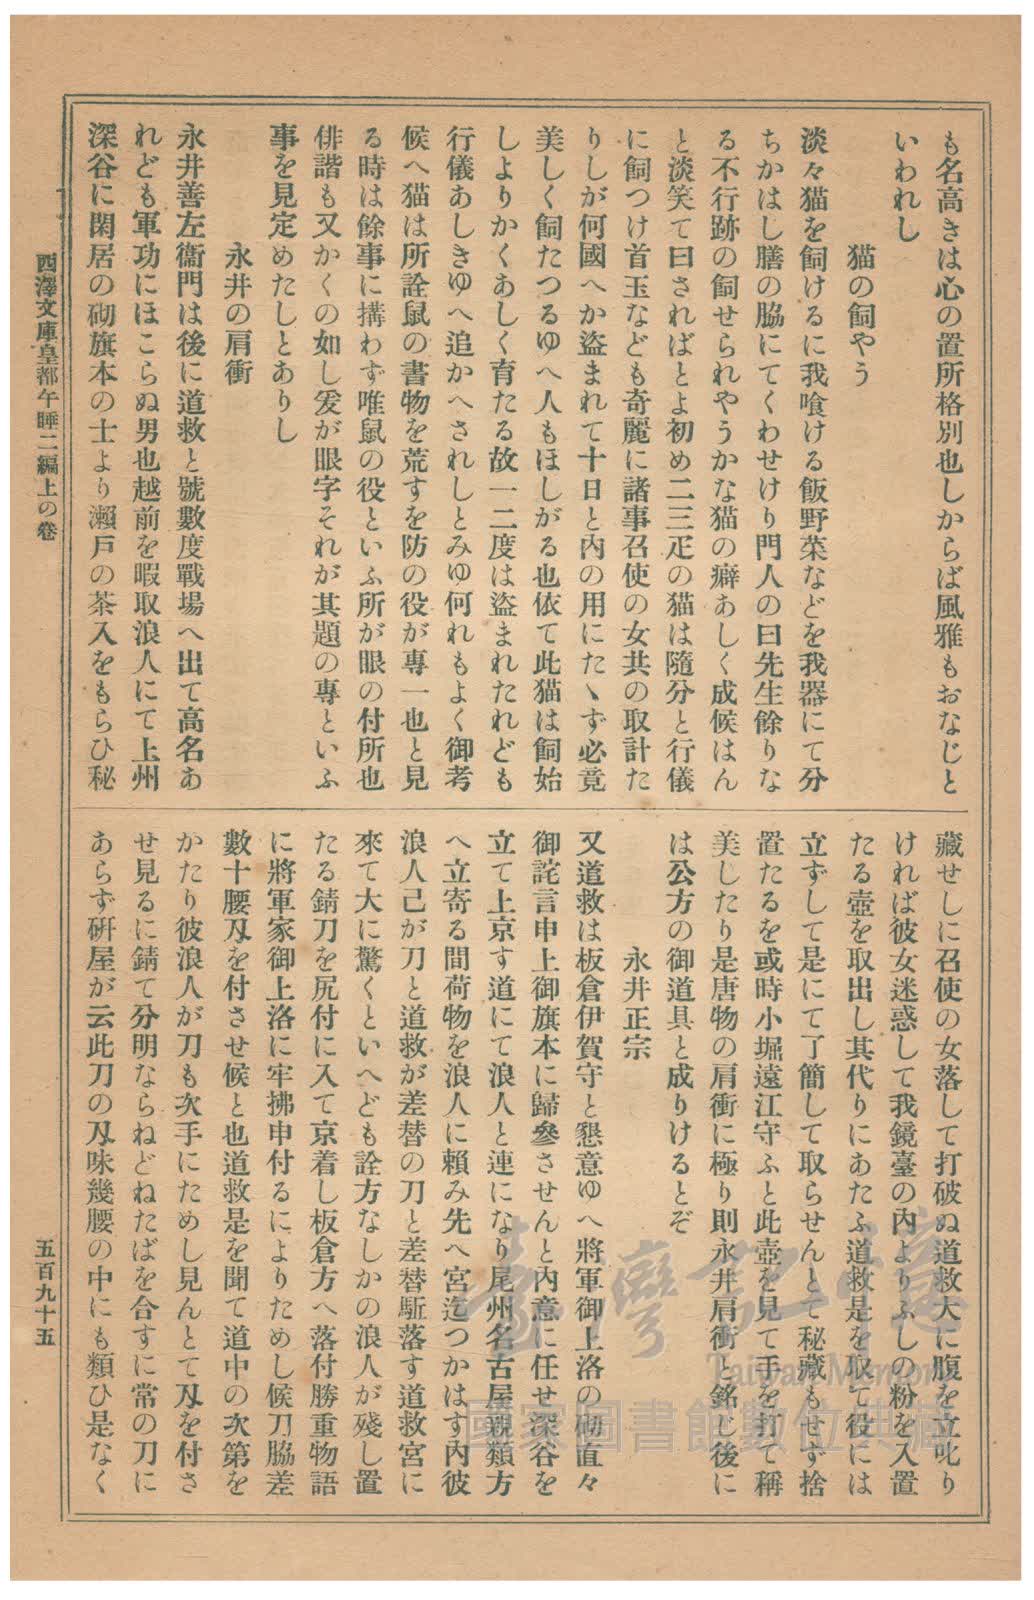 も名高きは心の置所格別也しからば風雅もおなじと
いわれし
猫の飼やう
淡々猫を飼けるに我喰ける飯野菜などを我器にて分
ちかはし膳の脇にてくわせけり門人の曰先生餘りな
る不行跡の飼せられやうかな猫の癖あしく成候はん
と淡笑て曰さればとよ初め二三疋の猫は隨分と行儀
に飼つけ首玉なども奇麗に諸事召使の女共の取計た
りしが何國へか盜まれて十日と內の用にたゝず必竟
美しく飼たつるゆへ人もほしがる也依て此猫は飼始
しよりかくあしく育たる故一二度は盜まれたれども
行儀あしきゆへ追かへされしとみゆ何れもよく御考
候へ猫は所詮鼠の書物を荒すを防の役が專一也と見
る時は餘事に搆わず唯鼠の役といふ所が眼の付所也
俳諧も又かくの如し爰が眼字それが其題の專といふ
事を見定めたしとありし
永井の肩衝
永井善左衞門は後に道救と號數度戰場へ出て高名あ
れども軍功にほこらぬ男也越前を暇取浪人にて上州
深谷に閑居の砌旗本の士より瀨戶の茶入をもらひ秘
藏せしに召使の女落して打破ぬ道救大に腹を立叱り
ければ彼女迷惑して我鏡臺の內よりふしの粉を入置
たる壺を取出し其代りにあたふ道救是を取て役には
立ずして是にて了簡して取らせんとて秘藏もせず捨
置たるを或時小堀遠江守ふと此壺を見て手を打て稱
美したり是唐物の肩衝に極り則永井肩衝と銘じ後に
は公方の御道具と成りけるとぞ
永井正宗
又道救は板倉伊賀守と懇意ゆへ將軍御上洛の砌直々
御詫言申上御旗本に歸參させんと內意に任せ深谷を
立て上京す道にて浪人と連になり尾州名古屋親類方
へ立寄る間荷物を浪人に賴み先へ宮迄つかはす內彼
浪人己が刀と道救が差替の刀と差替駈落す道救宮に
來て大に驚くといへども詮方なしかの浪人が殘し置
たる錆刀を尻付に入て京着し板倉方へ落付勝重物語
に將軍家御上洛に牢拂申付るによりためし候刀脇差
數十腰刄を付させ候と也道救是を聞て道中の次第を
かたり彼浪人が刀も次手にためし見んとて刄を付さ
せ見るに錆て分明ならねどねたばを合すに常の刀に
あらず硏屋が云此刀の刄味幾腰の中にも類ひ是なく
西澤文庫皇都午睡二編上の卷
五百九十五
臺灣記憶
Taiwan Memory
國家圖書館數位典藏